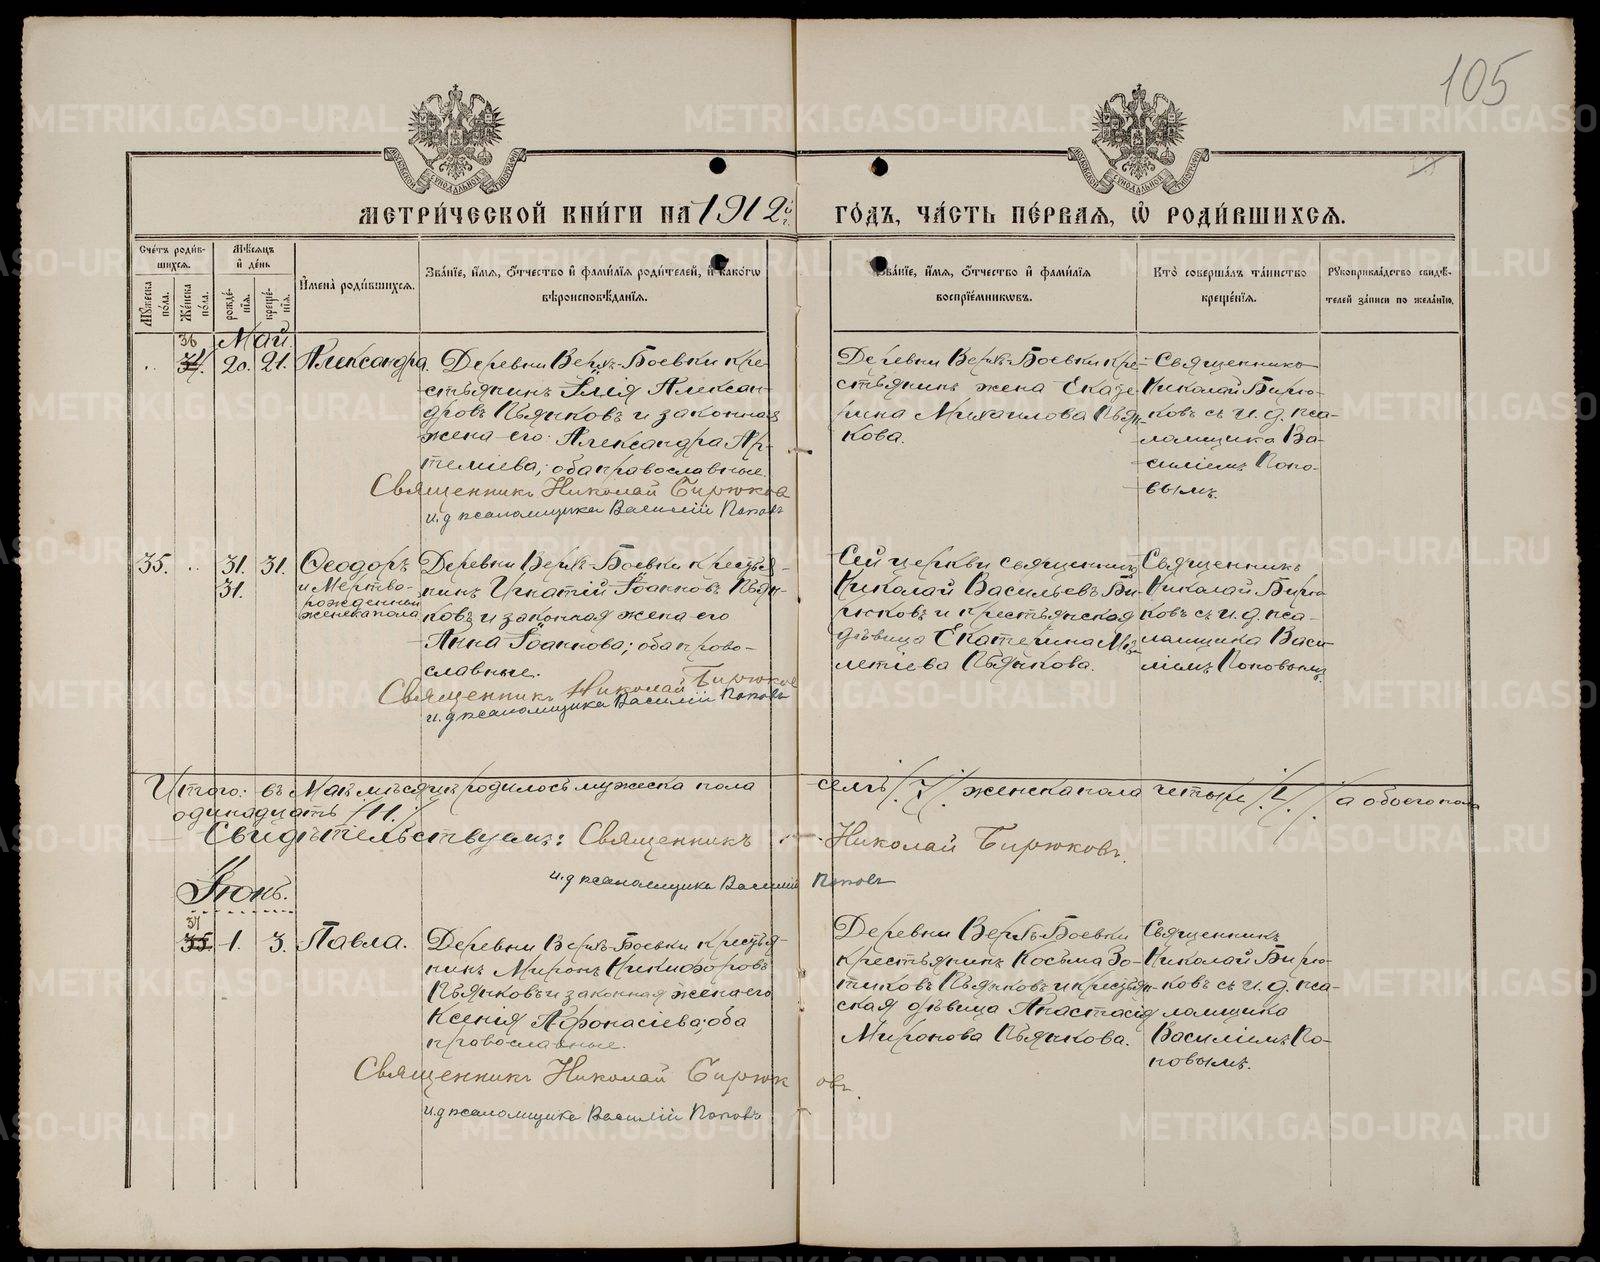 105
МЕТРИ́ЧЕСКОЙ КНИ́ГИ НА 1912 й г.
ГО́ДЪ, ЧА́СТЬ ПЕ́РВАЯ, Ѡ РОДИ́ВШИХСЯ.
Сче́тъ роди́в-
шихся.
Му́жеска по́ла.
Же́нска по́ла.
Мѣ́сяцъ
и де́нь
рожде́-
нія.
креще́-
нія.
Имена̀ роди́вшихся.
Зва́ніе, и́мя, о́тчество и фами́лія роди́телей, и како́гѡ
вѣроисповѣ́данія.
Зва́ніе, и́мя, о́тчество и фами́лія
воспріе́мниковъ.
Кто̀ соверша́лъ та́инство
креще́нія.
Рукоприкла́дство свидѣ́-
телей за́писи по жела́нію.
Май
36
34. 20. 21. Александра.
Деревни Верх-Боевки кре-
стьянинъ Илія Алексан-
дровъ Пьянковъ и законная
жена его Александра Ар-
темiева; оба православные.
Священникъ Николай Бирюков
и.д псаломщика Василій Поповъ
Деревни Верх-Боевки кре-
стьянинъ жена Екате-
рина Михаилова Пьян-
кова.
Священникъ
Николай Бирю-
ковъ съ и.д. пса-
ломщика Ва-
силіемъ Попо-
вымъ.
35. 31. 31. Ѳеодоръ
31. и Мертво-
рожденный
женска пола
Деревни Верх-Боевки крестья-
нинъ Игнатій Іоанновъ Пьян-
ковъ и законная жена его
Анна Іоаннова; оба право-
славные.
Священникъ Николай Бирюков
и.д псаломщика Василій Поповъ
Сей церкви священникъ
Николай Васильевъ Би-
рюковъ и крестьянская
дѣвица Екатерина
летіева Пьянкова.
Священникъ
Николай Бирю-
ковъ съ и.д. пса-
ломщика Васи-
ліемъ Поповымъ
Итого: въ Маѣ мѣсяцѣ родилось мужеска пола семь /.7/. женска пола четыре /.4/. а обоего пола
одинадцать /11./
Свидѣтельствуемъ: Священникъ Николай Бирюковъ.
и.д псаломщика Василій Поповъ
Іюнь.
37
35. 1. 3. Павла.
Деревни Верхъ-Боевки крестья-
нинъ Миронъ Никифоровъ
Пьянковъ и законная жена его
Ксенія Афонасіева; оба
православные.
Священникъ Николай Бирюковъ.
и.д псаломщика Василій Поповъ
Деревни Верхъ-Боевки
крестьянинъ Косьма Зо-
тиковъ Пьянковъ и крестьян-
ская дѣвица Анастасія
Миронова Пьянкова.
Священникъ
Николай Бирю-
ковъ съ и.д. пса-
ломщика
Василіемъ По-
повымъ.
METRIKI.GASO-URAL.RU